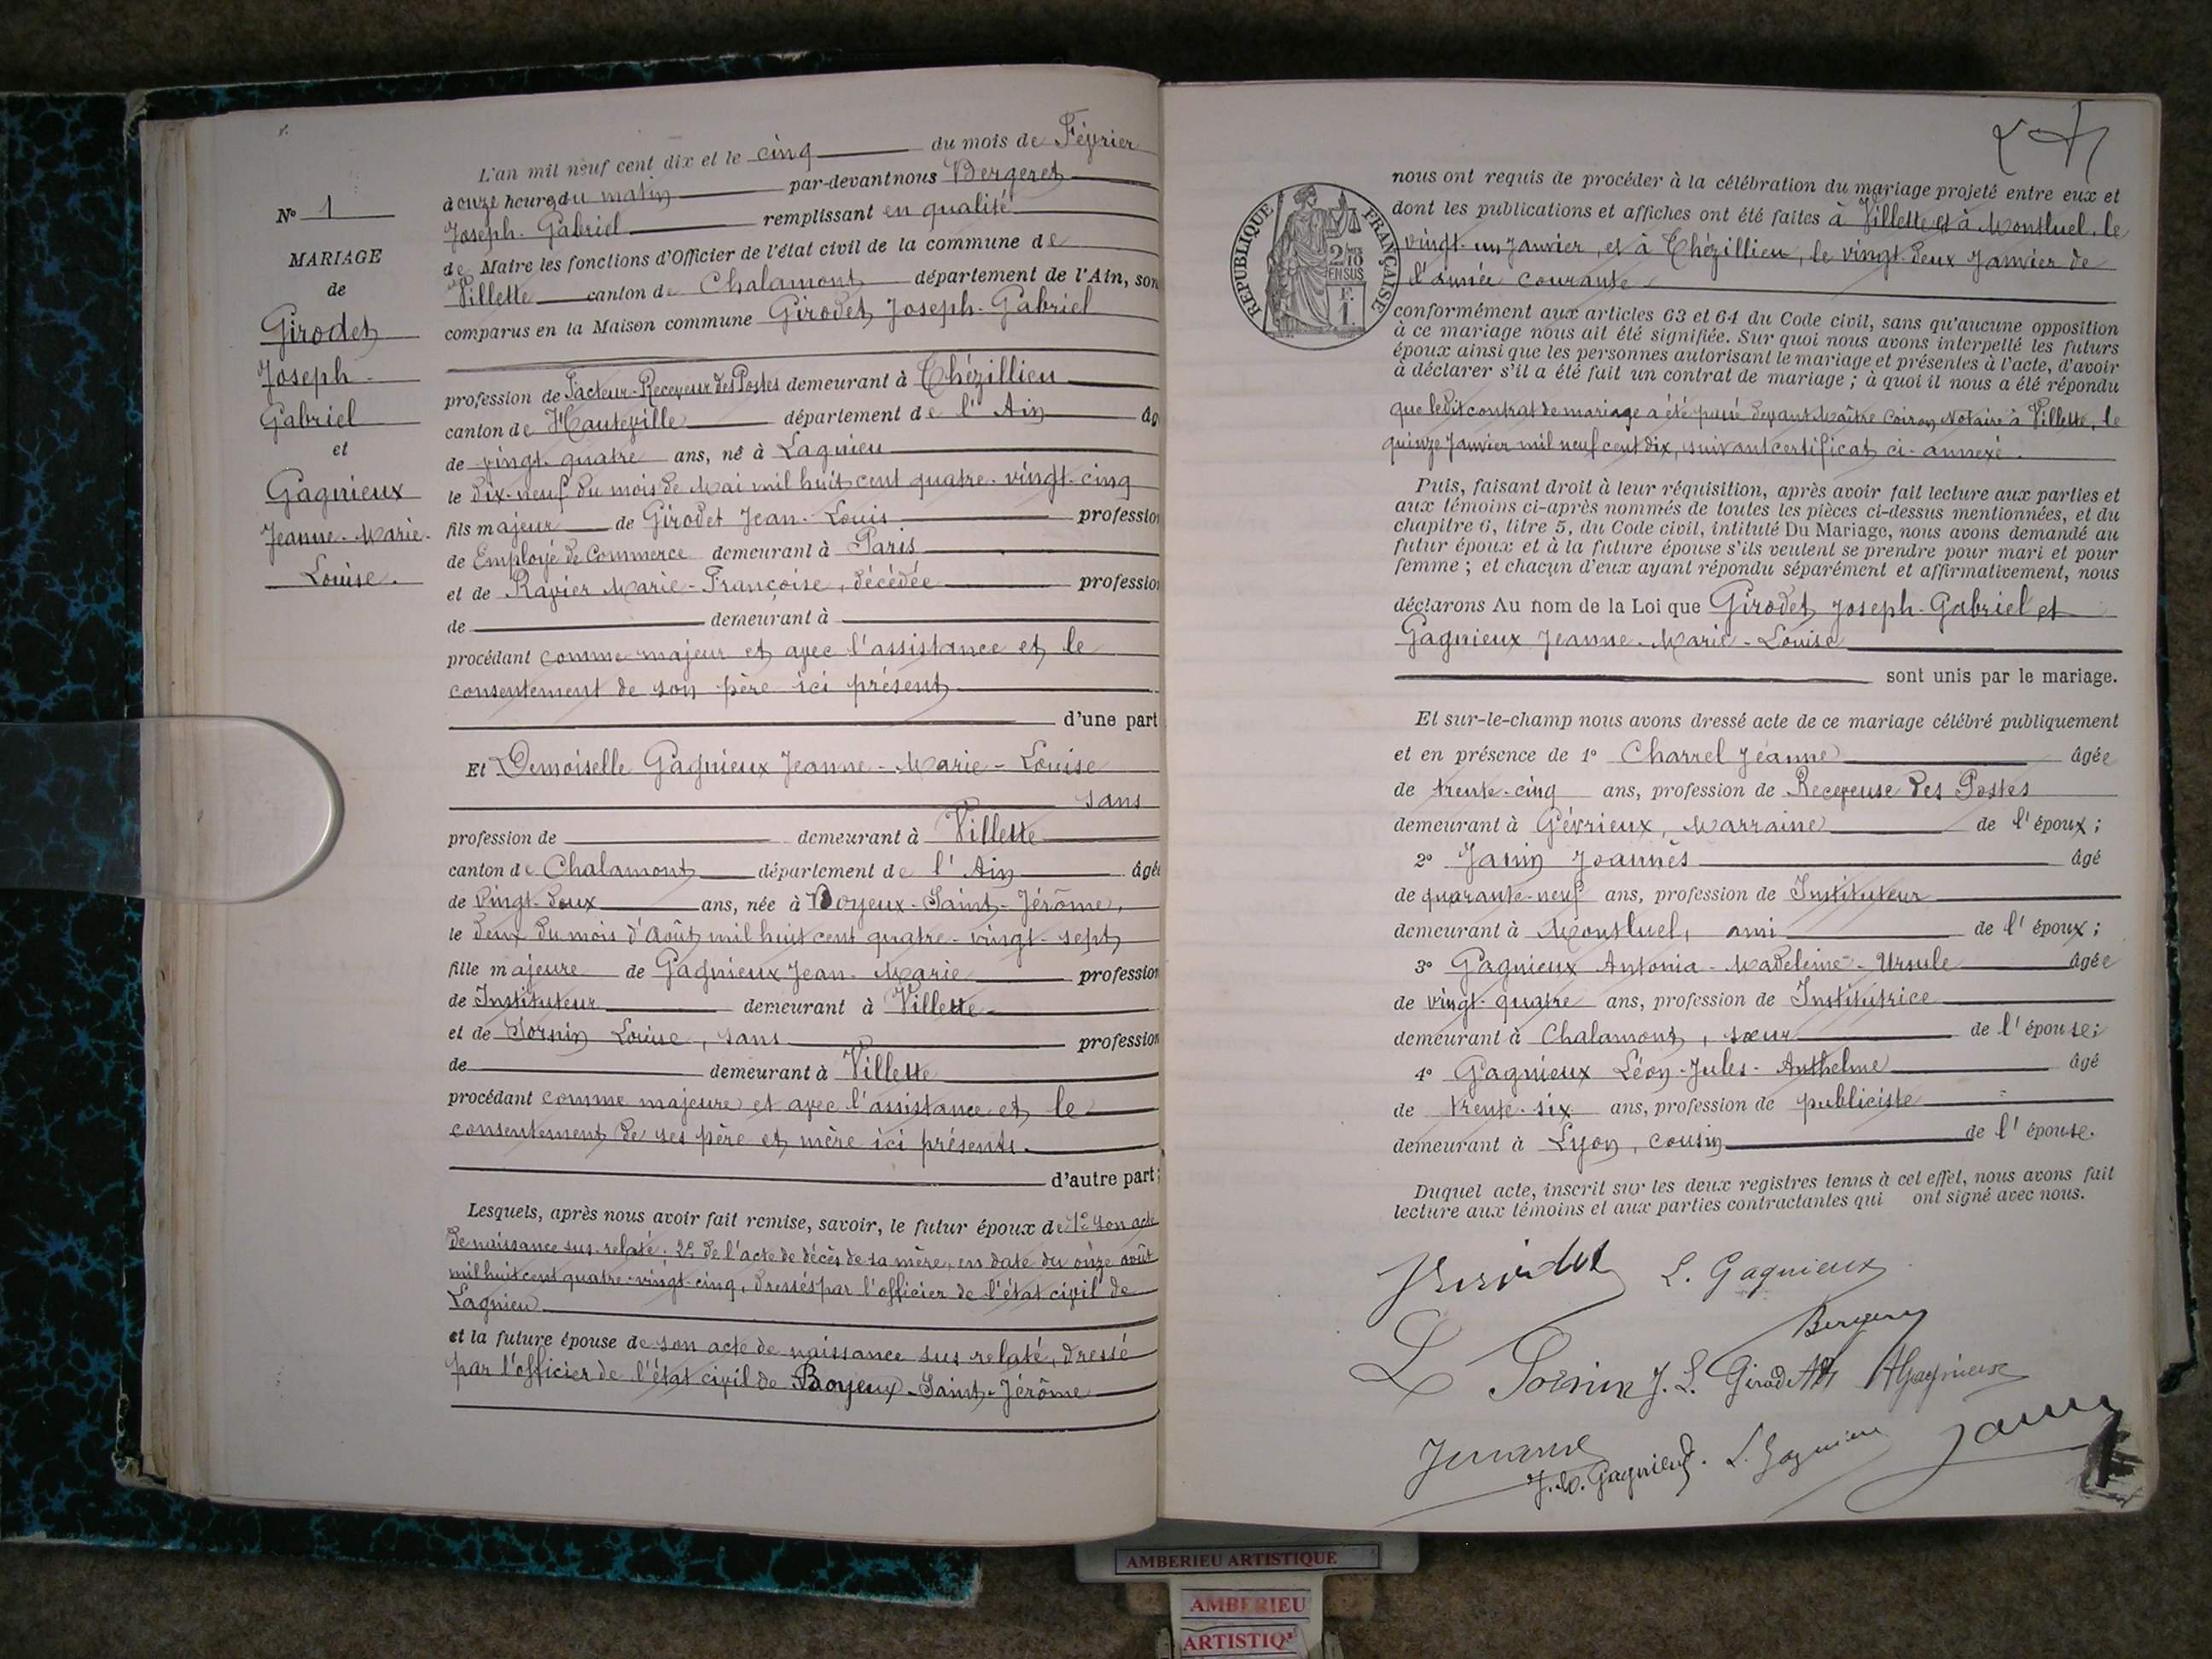 L'an mil neuf cent dix et le cinq du mois de Février
à onze heures du matin par-devant nous Bergeret
Joseph-Gabriel remplissant en qualité
de Maire les fonctions d'Officier de l'état civil de la commune de
Villette canton de Chalamont département de l'Ain, son
comparus en la Maison commune Girodet Joseph-Gabriel
profession de Facteur-Receveur des Postes demeurant à Thézillieu
canton de Hauteville département de l'Ain âg
de vingt-quatre ans, né à Lagnieu
le dix-neuf du mois de Mai mil huit cent quatre-vingt-cinq
fils majeur de Girodet Jean-Louis profession
de Employé de Commerce demeurant à Paris
et de Ravier Marie-Françoise, décédée profession
de demeurant à
procédant comme majeur et avec l'assistance et le
consentement de son père ici présent
d'une part
Et Demoiselle Gagnieux Jeanne-Marie-Louise
sans
profession de demeurant à Villette
canton de Chalamont département de l'Ain âgée
de vingt-deux ans, née à Boyeux-Saint-Jérôme,
le deux du mois d'Août mil huit cent quatre-vingt-sept
fille majeure de Gagnieux Jean-Marie profession
de Instituteur demeurant à Villette
et de Sornin Louise, sans profession
de demeurant à Villette
procédant comme majeure et avec l'assistance et le
consentement de ses père et mère ici présents.
d'autre part;
Lesquels, après nous avoir fait remise, savoir, le futur époux de 1º son acte
de naissance sus-relaté. 2º de l'acte de décès de sa mère, en date du onze août
mil huit cent quatre-vingt-cinq, dressés par l'officier de l'état civil de
Lagnieu
et la future épouse de son acte de naissance sus relaté, dressé
par l'officier de l'état civil de Boyeux-Saint-Jérôme
Nº 1
MARIAGE
de
Girodet
Joseph-
Gabriel
et
Gagnieux
Jeanne-Marie-
Louise.
RÉPUBLIQUE FRANÇAISE
2/10
EN SUS
F.
1.
nous ont requis de procéder à la célébration du mariage projeté entre eux et
dont les publications et affiches ont été faites à Villette et à Montluel, le
vingt-un Janvier, et à Thézillieu, le vingt-deux Janvier de
l'année courante
conformément aux articles 63 et 64 du Code civil, sans qu'aucune opposition
à ce mariage nous ait été signifiée. Sur quoi nous avons interpellé les futurs
époux ainsi que les personnes autorisant le mariage et présentes à l'acte, d'avoir
à déclarer s'il a été fait un contrat de mariage; à quoi il nous a été répondu
que ledit contrat de mariage a été passé devant Maître Coiron Notaire à Villette, le
quinze Janvier mil neuf cent dix, suivant certificat ci-annexé.
Puis, faisant droit à leur réquisition, après avoir fait lecture aux parties et
aux témoins ci-après nommés de toutes les pièces ci-dessus mentionnées, et du
chapitre 6, titre 5, du Code civil, intitulé Du Mariage, nous avons demandé au
futur époux et à la future épouse s'ils veulent se prendre pour mari et pour
femme; et chacun d'eux ayant répondu séparément et affirmativement, nous
déclarons Au nom de la Loi que Girodet Joseph-Gabriel et
Gagnieux Jeanne-Marie-Louise
sont unis par le mariage.
Et sur-le-champ nous avons dressé acte de ce mariage célébré publiquement
et en présence de 1º Charrel Jeanne âgée
de trente-cinq ans, profession de Receveuse des Postes
demeurant à Gévrieux, Marraine de l'époux;
2º Janin Joannès âgé
de quarante-neuf ans, profession de Instituteur
demeurant à Montluel, ami de l'époux;
3º Gagnieux Antonia-Madeleine-Ursule âgée
de vingt-quatre ans, profession de Institutrice
demeurant à Chalamont, sœur de l'épouse;
4º Gagnieux Léon-Jules-Anthelme âgé
de trente-six ans, profession de publiciste
demeurant à Lyon, cousin de l'épouse.
Duquel acte, inscrit sur les deux registres tenus à cet effet, nous avons fait
lecture aux témoins et aux parties contractantes qui ont signé avec nous.
Girodet L. Gagnieux
Bergeret
L Sornin J. L. Girodet AGagnieux
J.M. Gagnieux. L. Gagnieux Janin
AMBERIEU ARTISTIQUE
AMBERIEU
ARTISTIQ